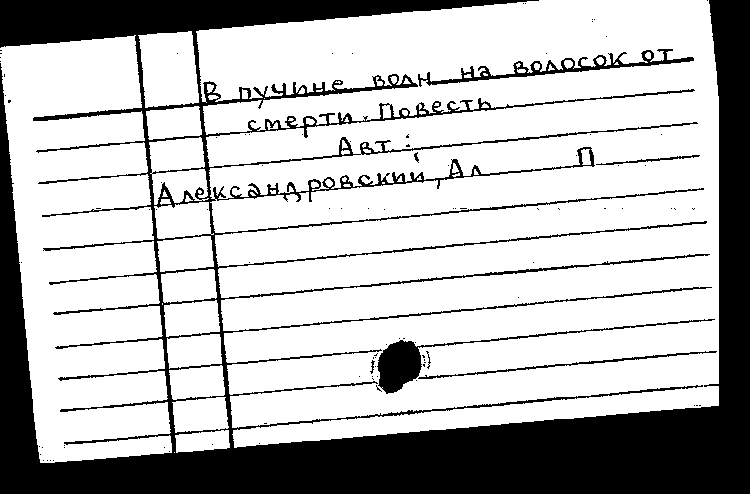 В пучине волн на волосок от
смерти. Повесть
Авт:
Александровский, Ал П